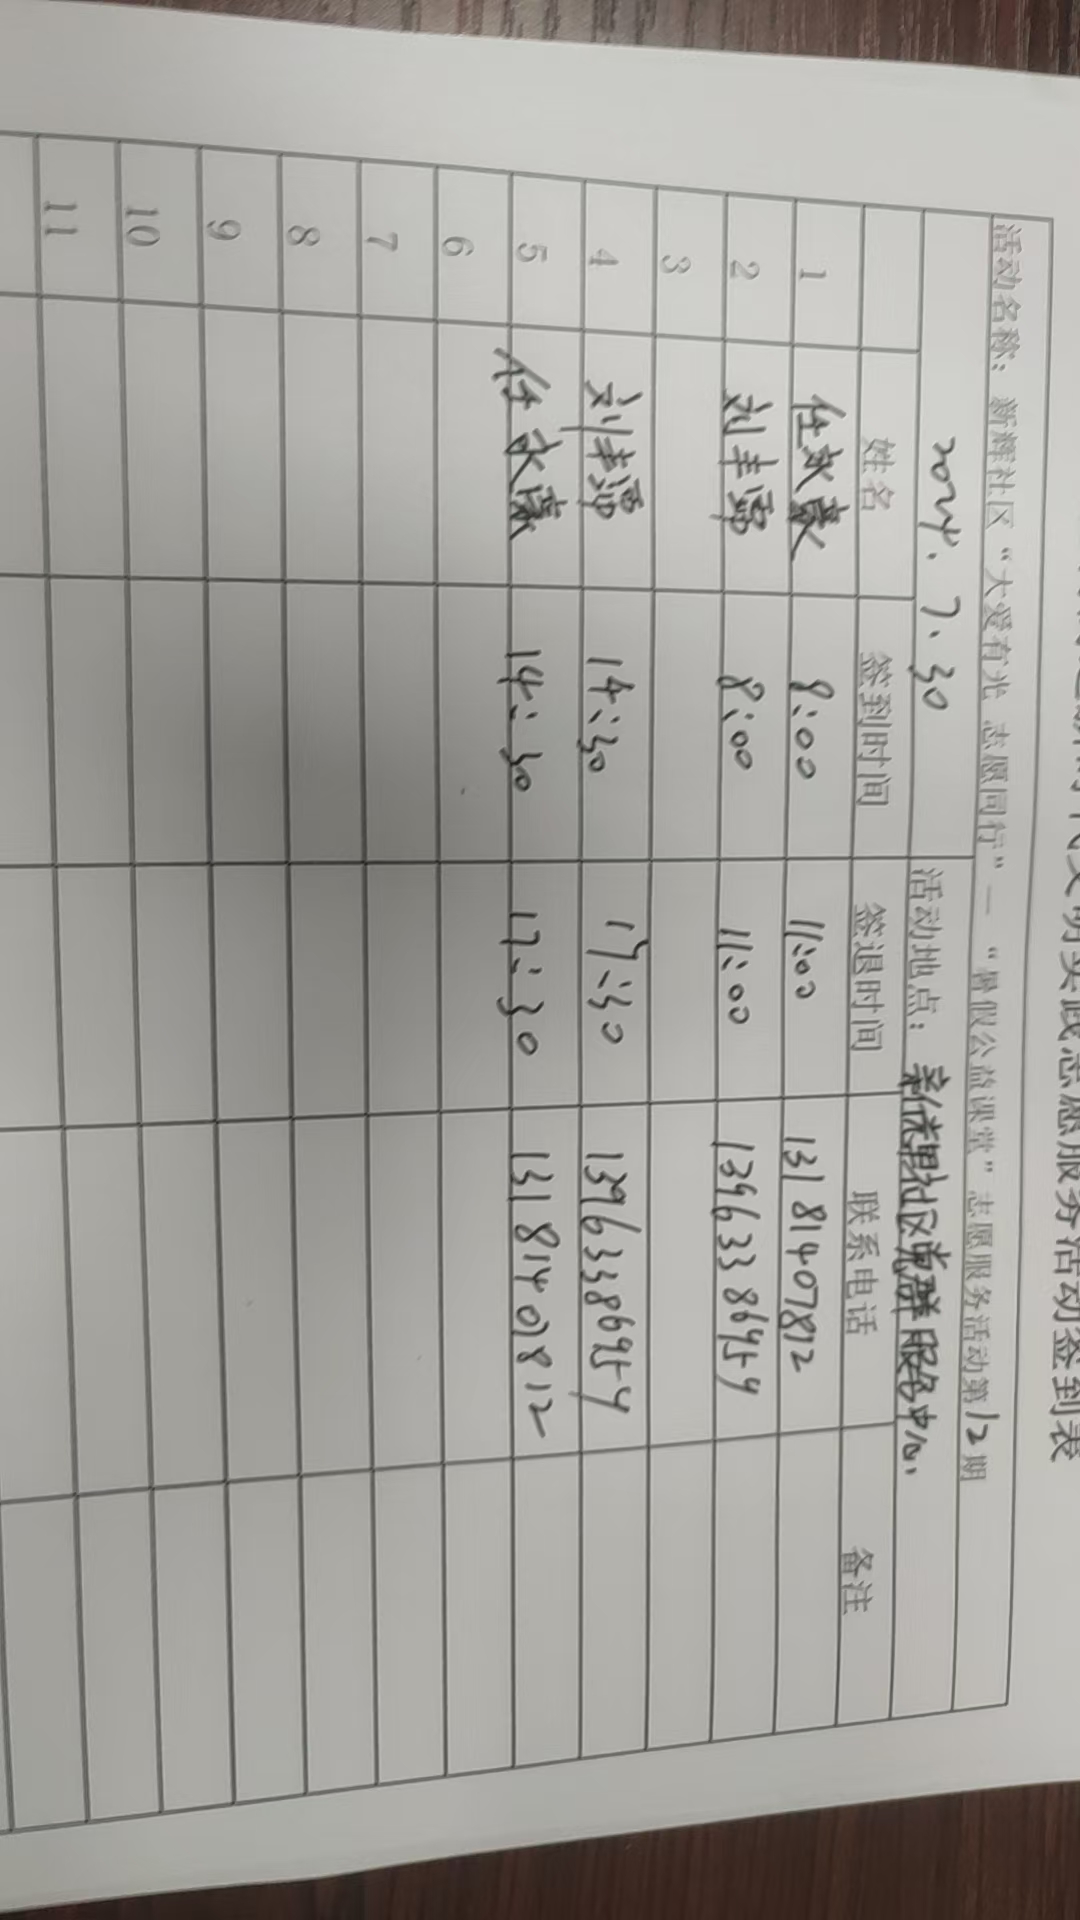 时代文明实践志愿服务活动签到表
活动名称：新辉社区“大爱有光 志愿同行”—“暑假公益课堂”志愿服务活动第12期
2024.7.30 活动地点：社区党群服务中心.
姓名 签到时间 签退时间 联系电话 备注
1 任 8:00 11:00 13181407812
2 刘丰 8:00 11:00 13963386959
3
4 刘丰 14:30 17:30 13963386959
5 任永 14:30 17:30 13181407812
6
7
8
9
10
11